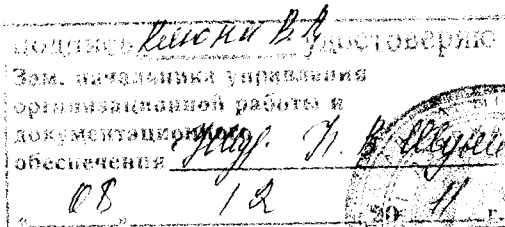 подпись В.Д. удостоверяю
Зам. начальника управления
организационной работы и
документационного
обеспечения Н. В.
"08" 12 2011 г.